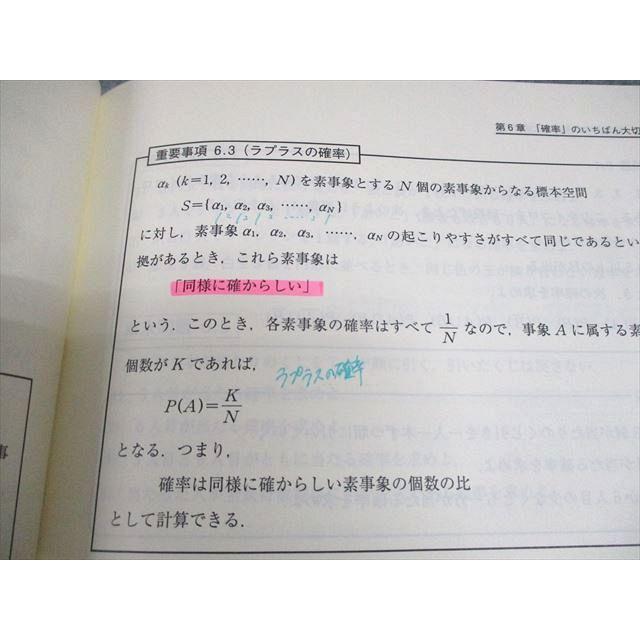 第6章 「確率」のいちばん大切
重要事項 6.3（ラプラスの確率）
αk (k=1, 2, ……, N) を素事象とする N 個の素事象からなる標本空間
S={α1, α2, α3, ……, αN}
に対し，素事象 α1, α2, α3, ……, αN の起こりやすさがすべて同じであるとい
拠があるとき，これら素事象は
「同様に確からしい」
という．このとき，各素事象の確率はすべて 1/N なので，事象 A に属する素
個数が K であれば，
ラプラスの確率
P(A)=K/N
となる．つまり，
確率は同様に確からしい素事象の個数の比
として計算できる．
事